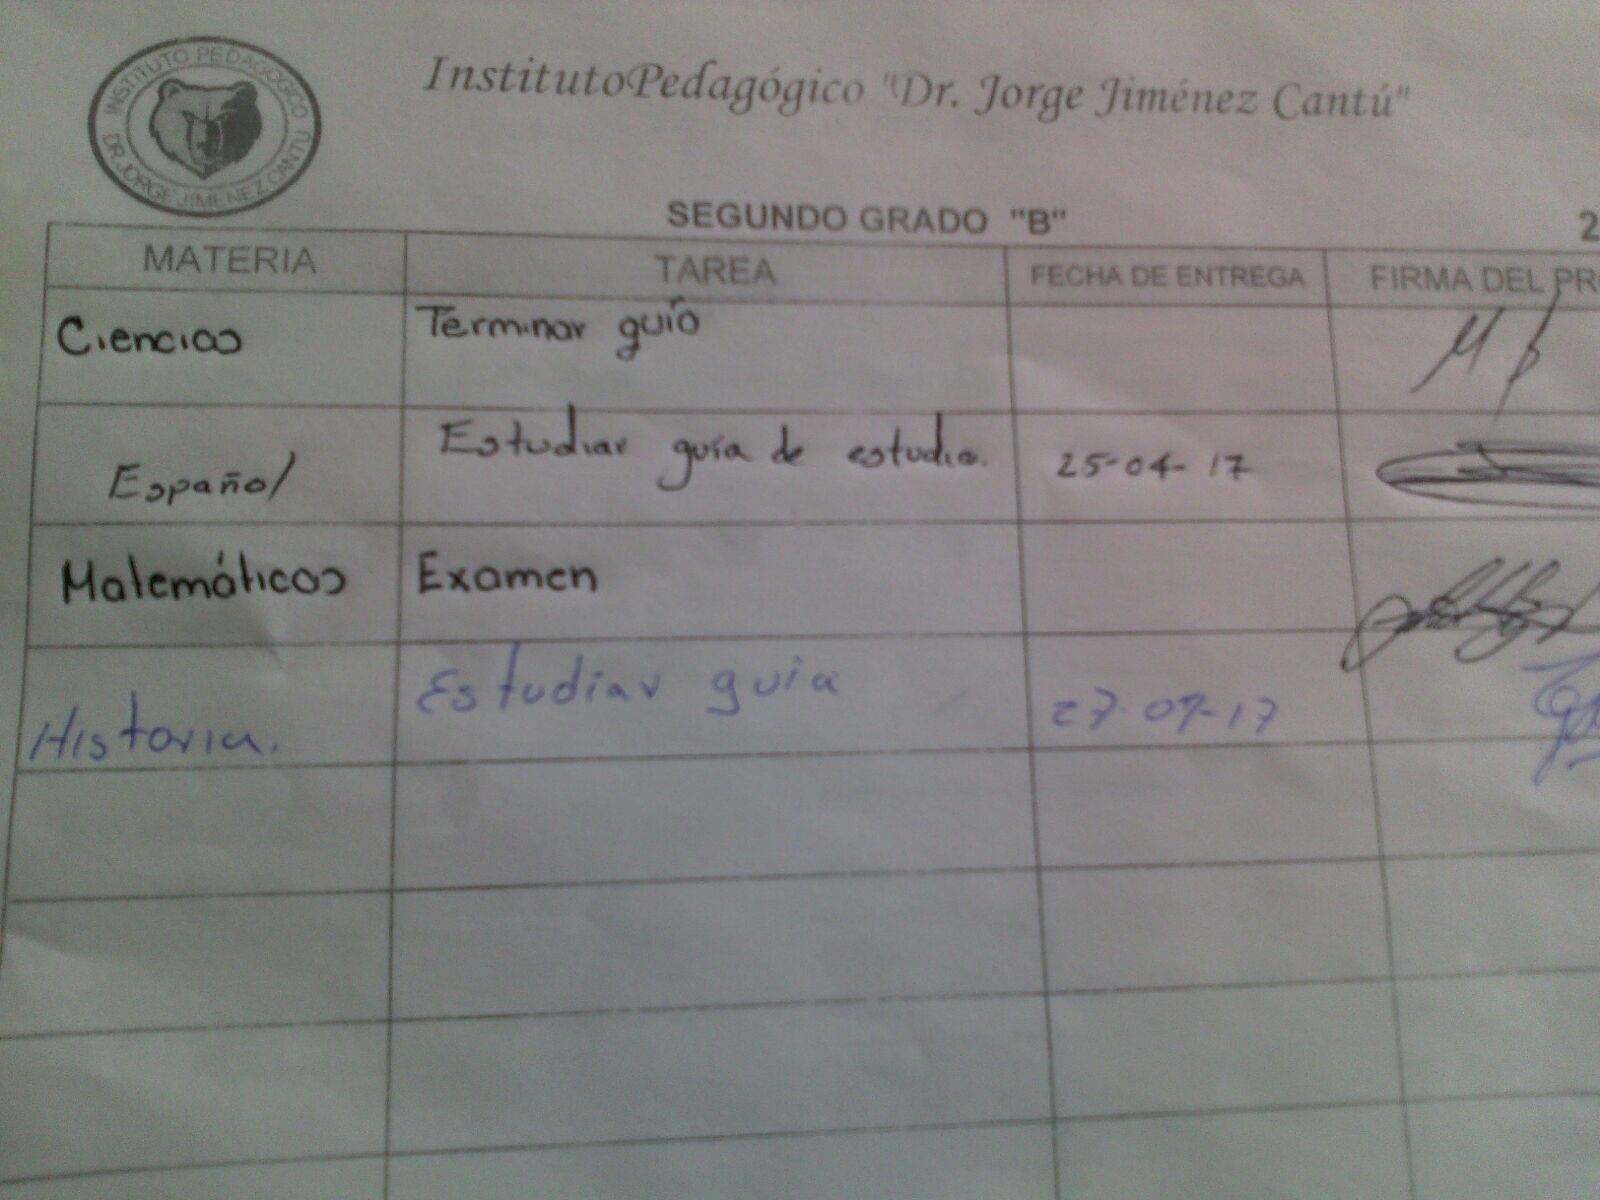 INSTITUTO PEDAGOGICO
DR. JORGE JIMENEZ CANTU
InstitutoPedagógico "Dr. Jorge Jiménez Cantú"
SEGUNDO GRADO "B"
2
MATERIA TAREA FECHA DE ENTREGA FIRMA DEL PRO
Ciencias Terminar guía
Español Estudiar guía de estudio. 25-04-17
Matemáticas Examen
Historia. Estudiar guia 27-04-17